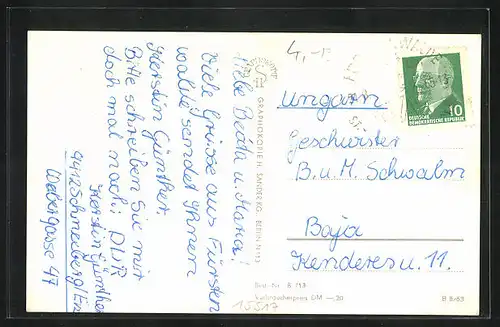 Liebe Beata u. Maria!
Viele Grüsse aus Fürsten
walde sendet Ihnen
Kerstin Günther.
Bitte schreiben Sie mir
doch mal nach: DDR
Kerstin Günther
9412 Schneeberg/Erz
Webergasse 47
GRAPHOKOPIE H. SANDER KG. BERLIN N 113
4,-
DEUTSCHE
DEMOKRATISCHE REPUBLIK
10
Ungarn
Geschwister
B. u. M. Schwalm
Baja
Kenderes u. 11.
Best.-Nr. B 713
Verbraucherpreis DM —.20
15517